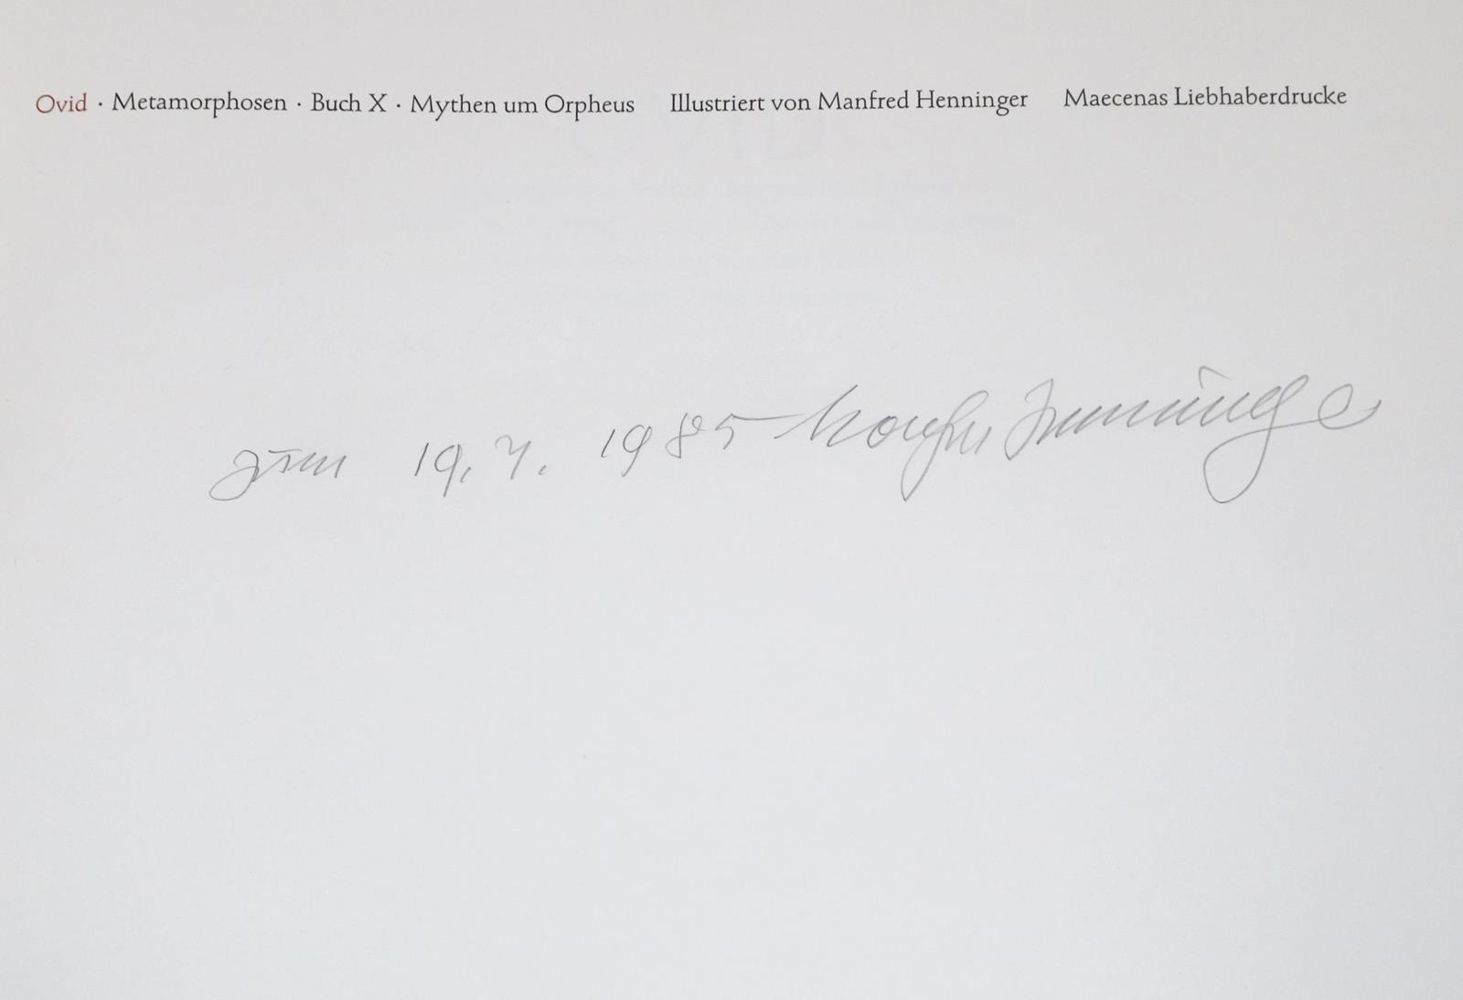 Ovid · Metamorphosen · Buch X · Mythen um Orpheus Illustriert von Manfred Henninger Maecenas Liebhaberdrucke
zum 19. 7. 1985 Manfred Henninger